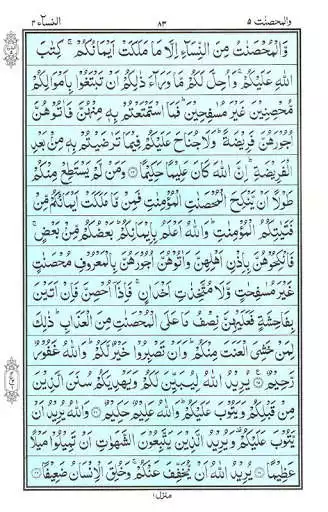 والمحصنت ٥
٨٣
النساء ٤
وَّالْمُحْصَنٰتُ مِنَ النِّسَآءِ اِلَّا مَا مَلَكَتْ اَيْمَانُكُمْ ۚ كِتٰبَ
اللّٰهِ عَلَيْكُمْ ۚ وَاُحِلَّ لَكُمْ مَّا وَرَآءَ ذٰلِكُمْ اَنْ تَبْتَغُوْا بِاَمْوَالِكُمْ
مُّحْصِنِيْنَ غَيْرَ مُسٰفِحِيْنَ ؕ فَمَا اسْتَمْتَعْتُمْ بِهٖ مِنْهُنَّ فَاٰتُوْهُنَّ
اُجُوْرَهُنَّ فَرِيْضَةً ؕ وَلَا جُنَاحَ عَلَيْكُمْ فِيْمَا تَرٰضَيْتُمْ بِهٖ مِنْۢ بَعْدِ
الْفَرِيْضَةِ ؕ اِنَّ اللّٰهَ كَانَ عَلِيْمًا حَكِيْمًا ۝ وَمَنْ لَّمْ يَسْتَطِعْ مِنْكُمْ
طَوْلًا اَنْ يَّنْكِحَ الْمُحْصَنٰتِ الْمُؤْمِنٰتِ فَمِنْ مَّا مَلَكَتْ اَيْمَانُكُمْ مِّنْ
فَتَيٰتِكُمُ الْمُؤْمِنٰتِ ؕ وَاللّٰهُ اَعْلَمُ بِاِيْمَانِكُمْ ؕ بَعْضُكُمْ مِّنْۢ بَعْضٍ ۚ
فَانْكِحُوْهُنَّ بِاِذْنِ اَهْلِهِنَّ وَاٰتُوْهُنَّ اُجُوْرَهُنَّ بِالْمَعْرُوْفِ مُحْصَنٰتٍ
غَيْرَ مُسٰفِحٰتٍ وَّلَا مُتَّخِذٰتِ اَخْدَانٍ ۚ فَاِذَآ اُحْصِنَّ فَاِنْ اَتَيْنَ
بِفَاحِشَةٍ فَعَلَيْهِنَّ نِصْفُ مَا عَلَى الْمُحْصَنٰتِ مِنَ الْعَذَابِ ؕ ذٰلِكَ
لِمَنْ خَشِيَ الْعَنَتَ مِنْكُمْ ؕ وَاَنْ تَصْبِرُوْا خَيْرٌ لَّكُمْ ؕ وَاللّٰهُ غَفُوْرٌ
رَّحِيْمٌ ۝ يُرِيْدُ اللّٰهُ لِيُبَيِّنَ لَكُمْ وَيَهْدِيَكُمْ سُنَنَ الَّذِيْنَ
مِنْ قَبْلِكُمْ وَيَتُوْبَ عَلَيْكُمْ ؕ وَاللّٰهُ عَلِيْمٌ حَكِيْمٌ ۝ وَاللّٰهُ يُرِيْدُ اَنْ
يَّتُوْبَ عَلَيْكُمْ ۟ وَيُرِيْدُ الَّذِيْنَ يَتَّبِعُوْنَ الشَّهَوٰتِ اَنْ تَمِيْلُوْا مَيْلًا
عَظِيْمًا ۝ يُرِيْدُ اللّٰهُ اَنْ يُّخَفِّفَ عَنْكُمْ ۚ وَخُلِقَ الْاِنْسَانُ ضَعِيْفًا ۝
منزل١